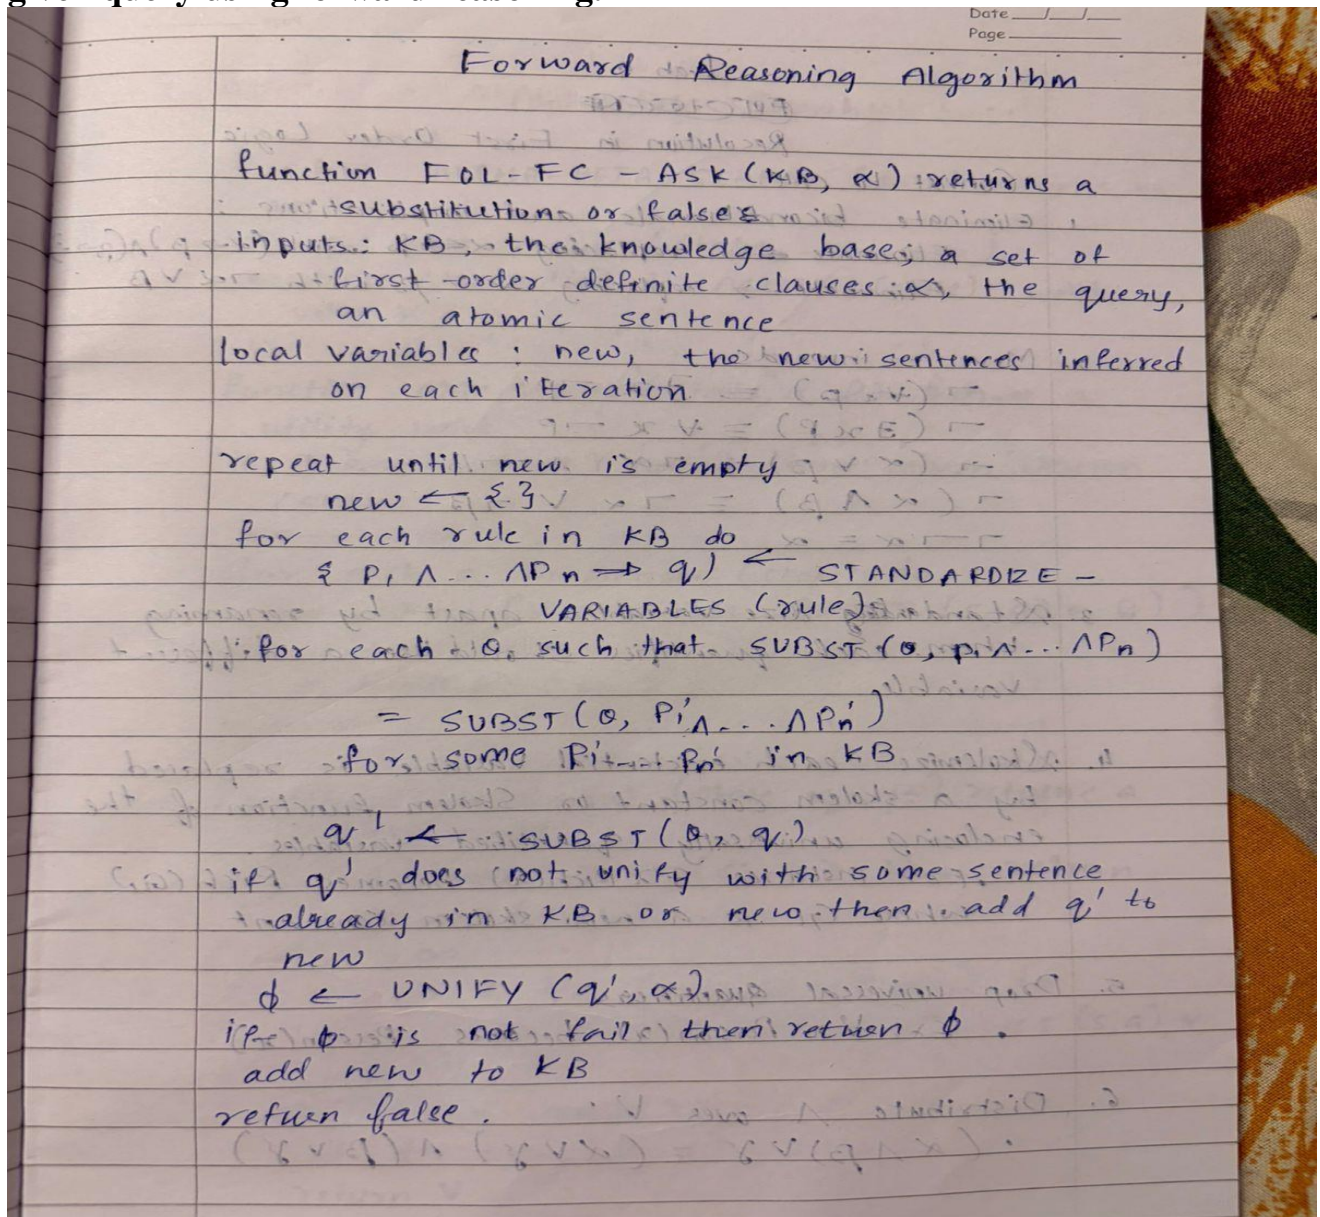 given query using forward reasoning.
Date
Page
Forward Reasoning Algorithm
function FOL-FC-ASK(KB, α) returns a
substitution or false
inputs: KB, the knowledge base, a set of
first-order definite clauses α, the query,
an atomic sentence
local variables : new, the new sentences inferred
on each iteration
repeat until new is empty
new ← { }
for each rule in KB do
{ P1 ∧ ... ∧ Pn ⇒ q) ← STANDARDIZE -
VARIABLES (rule)
for each θ, such that SUBST (θ, p1 ∧ ... ∧ Pn)
= SUBST (θ, P1' ∧ ... ∧ Pn')
for some Pi' ... Pn' in KB
q' ← SUBST (θ, q)
if q' does not unify with some sentence
already in KB or new then add q' to
new
ϕ ← UNIFY (q', α)
if ϕ is not fail then return ϕ .
add new to KB
return false .